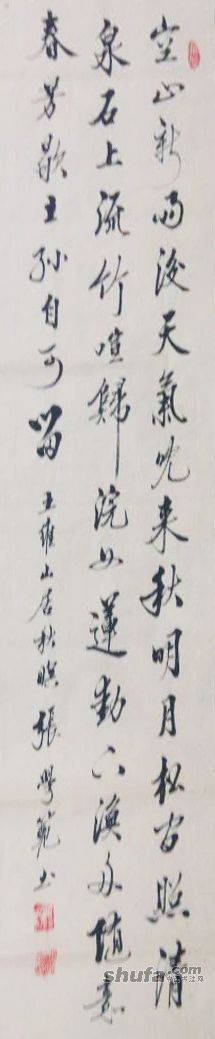 空山新雨後天氣晚来秋明月松间照清
泉石上流竹喧歸浣女蓮動下漁舟随意
春芳歇王孙自可留 王維山居秋暝 張學範书
shufa.com